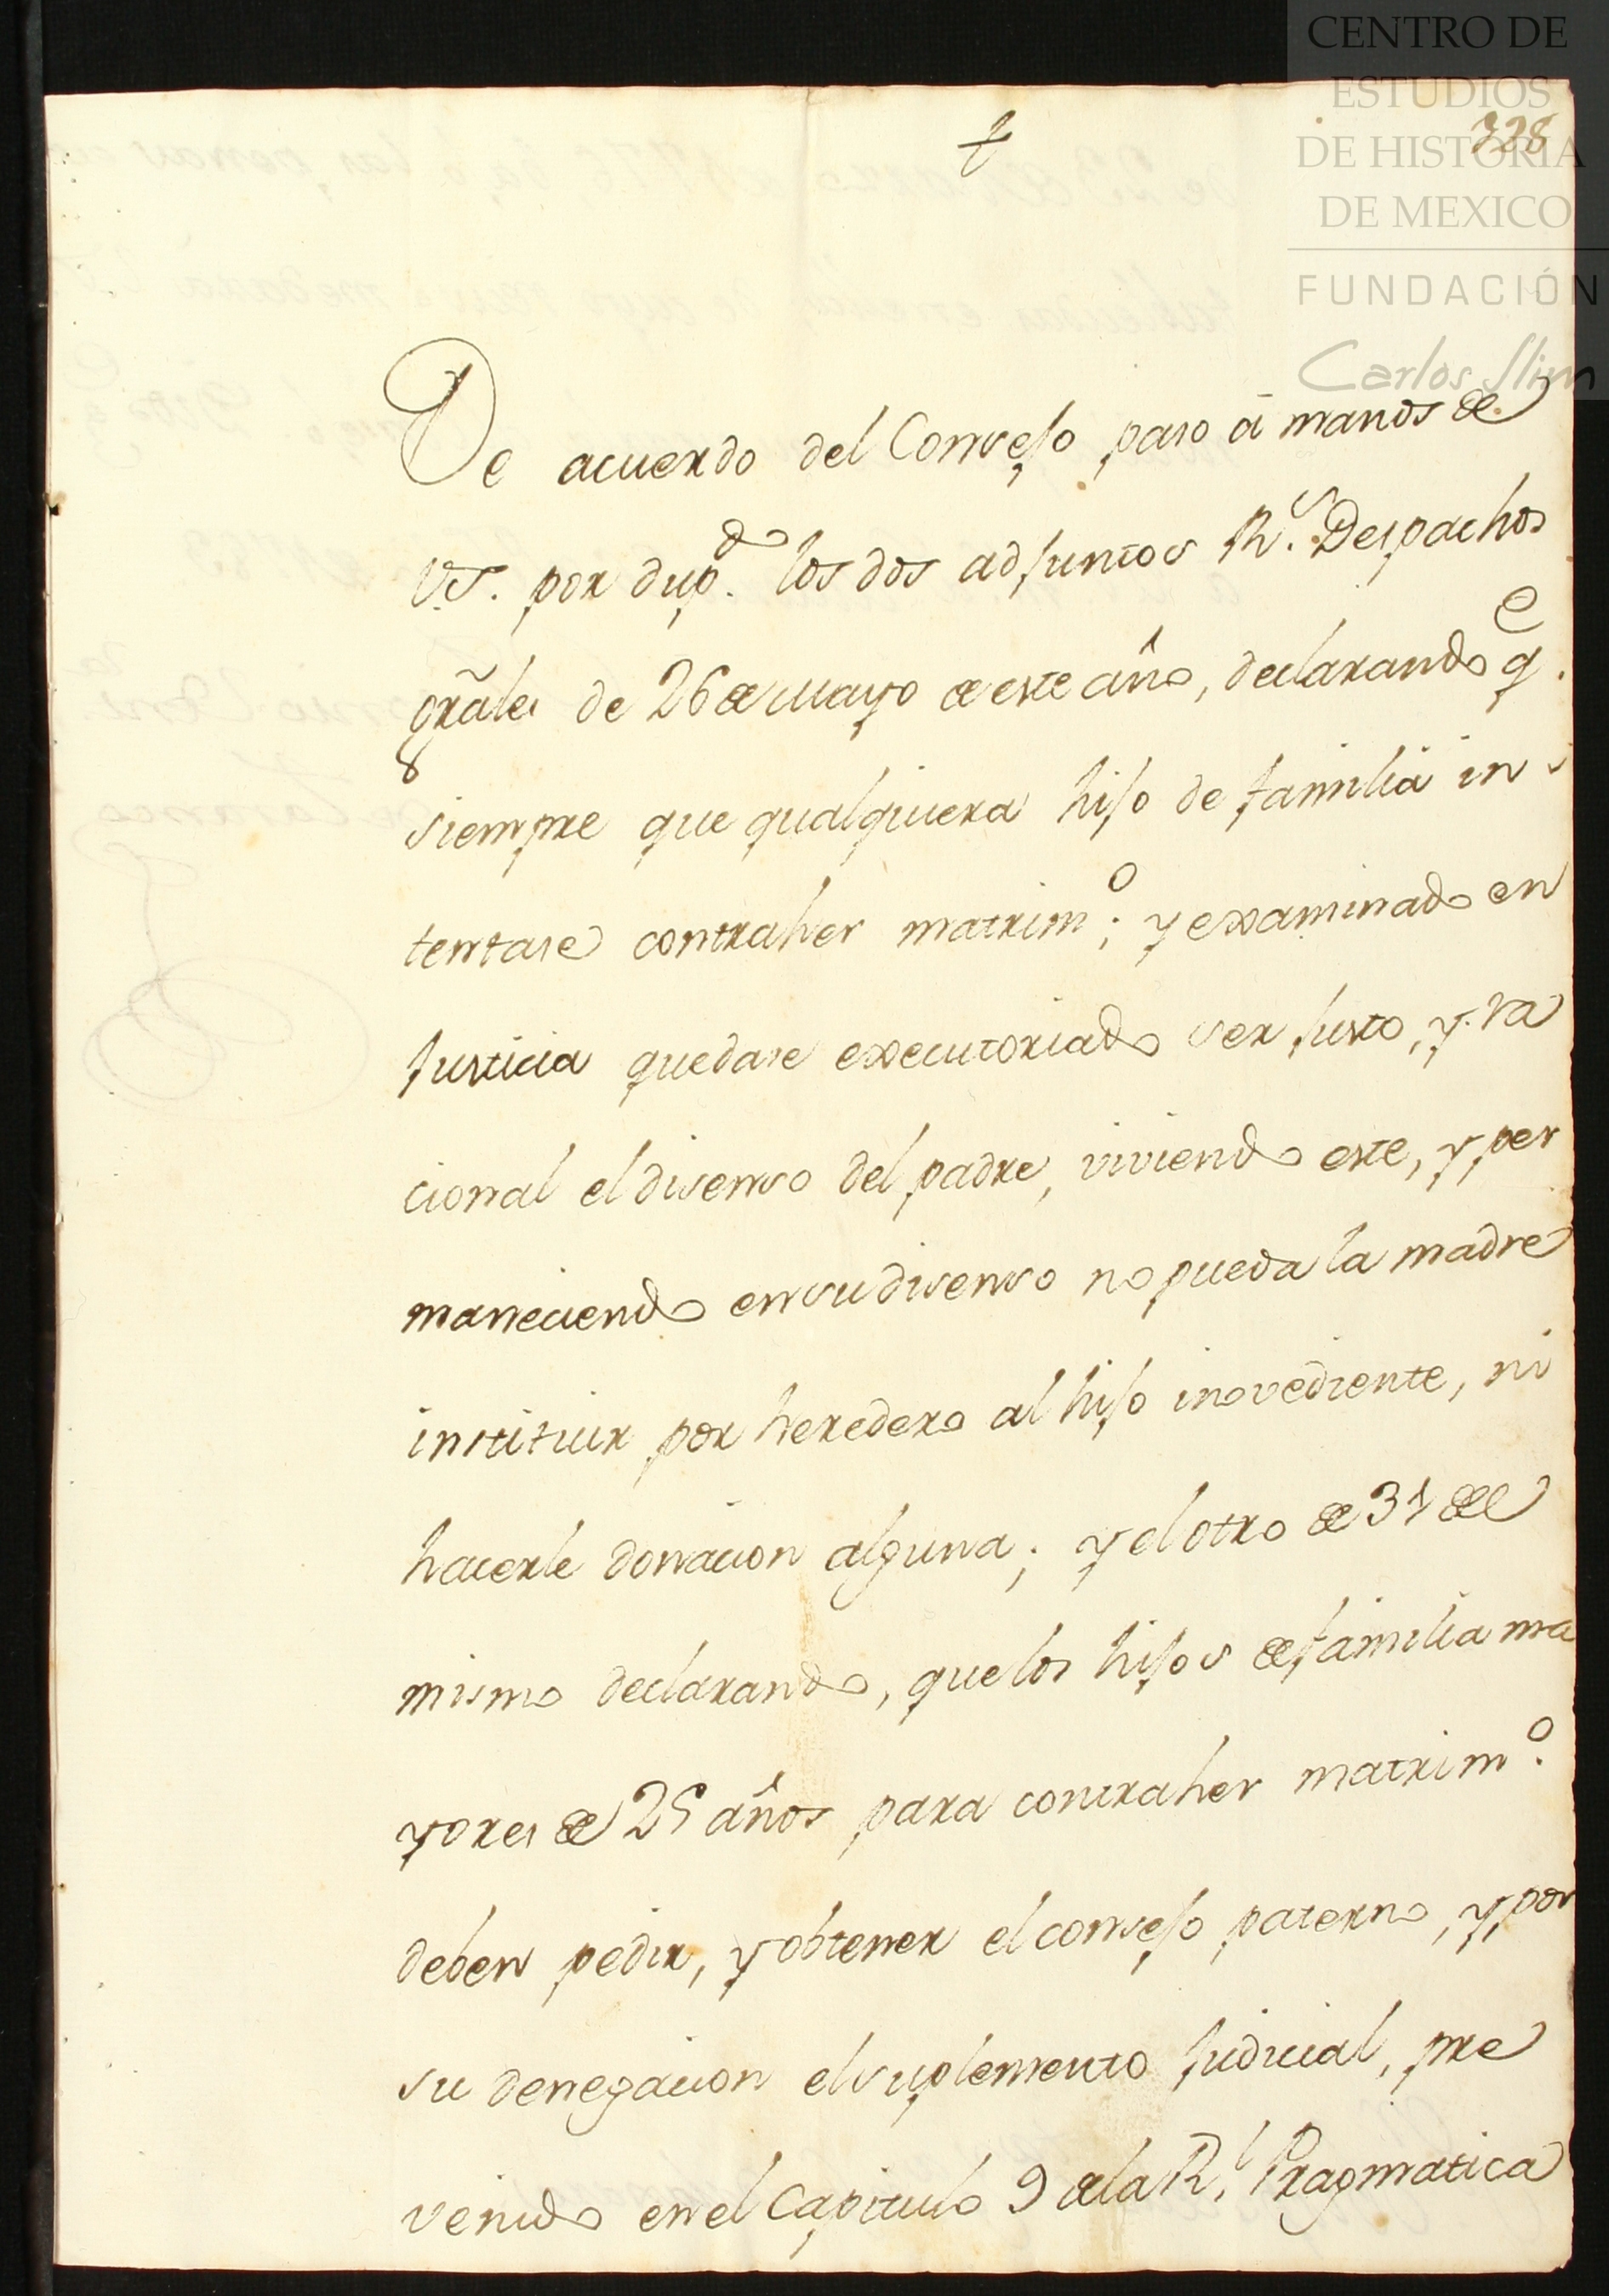 CENTRO DE
ESTUDIOS
DE HISTORIA
DE MEXICO
FUNDACIÓN
Carlos Slim
328
De acuerdo del Consejo paso â manos de
V.S. por dup.do los dos adjuntos R.s Despachos
grãles de 26 de Mayo de este año, declarando q.e
siempre que qualquiera hijo de familia in-
tentase contraher matrim.o; y examinado en
Justicia quedase executoriado ser justo, y ra
cional el disenso del padre, viviendo este, y per
maneciendo en su disenso no pueda la madre
instituir por heredero al hijo inovediente, ni
hacerle donacion alguna; y el otro de 31 del
mismo declarando, que los hijos de familia ma
yores de 25 años para contraher matrim.o
deben pedir, y obtener el consejo paterno, y por
su denegacion el suplemento Judicial, pre
venido en el Capitulo 9 de la R.l Pragmatica